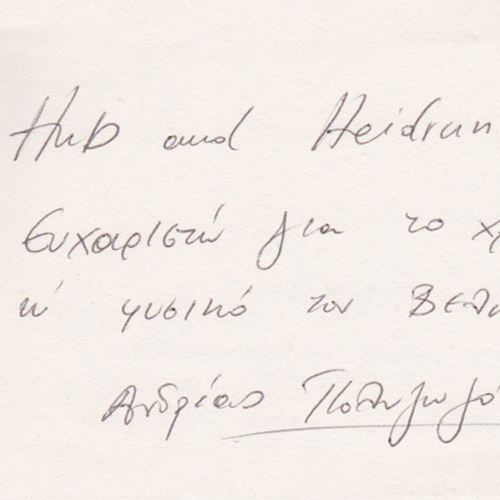 Hub and Heidrun
Ευχαριστώ για το χρ
κι' φυσικό τον Βελ
Ανδρέας